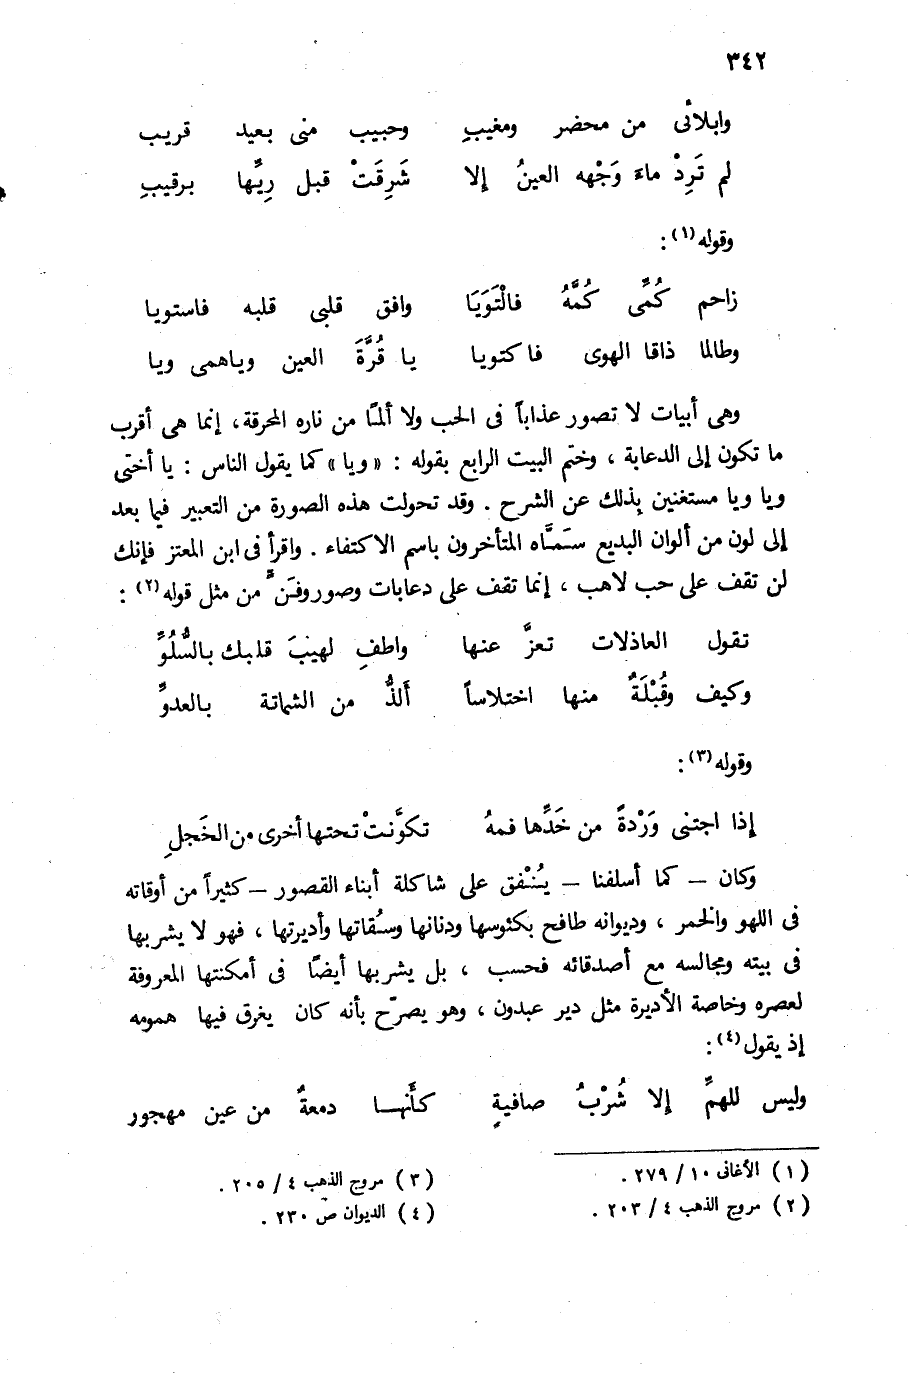 ٣٤٢
وابلائى من محضر ومغيبِ وحبيب منى بعيد قريب
لم تَرِدْ ماءَ وَجْهه العينُ إلا شَرِقَتْ قبل رِيِّها برقيبِ
وقوله(١) :
زاحم كُمِّى كُمَّهُ فالْتَوَيَا وافق قلبى قلبه فاستويا
وطالما ذاقا الهوى فاكتويا يا قُرَّةَ العين وياهمى ويا
وهى أبيات لا تصور عذاباً فى الحب ولا ألمًا من ناره المحرقة، إنما هى أقرب
ما تكون إلى الدعابة ، وختم البيت الرابع بقوله : « ويا » كما يقول الناس : يا أختى
ويا ويا مستغنين بِذلك عن الشرح . وقد تحولت هذه الصورة من التعبير فيما بعد
إلى لون من ألوان البديع سَمَّاه المتأخرون باسم الاكتفاء . واقرأ فى ابن المعتز فإنك
لن تقف على حب لاهب ، إنما تقف على دعابات وصور وفَن من مثل قوله(٢) :
تقول العاذلات تعزَّ عنها واطفِ لهيبَ قلبك بالسُّلُوِّ
وكيف وقُبْلَةٌ منها اختلاساً أَلذُّ من الشماتة بالعدوِّ
وقوله(٣) :
إذا اجتنى وَرْدةً من خَدِّها فمهُ تكوَّنتْ تحتها أخرى من الخَجلِ
وكان – كما أسلفنا – يُنْفق على شاكلة أبناء القصور – كثيراً من أوقاته
فى اللهو والخمر ، وديوانه طافح بكئوسها ودنانها وسُقاتها وأديرتها ، فهو لا يشربها
فى بيته ومجالسه مع أصدقائه فحسب ، بل يشربها أيضًا فى أمكنتها المعروفة
لعصره وخاصة الأديرة مثل دير عبدون ، وهو يصرّح بأنه كان يغرق فيها همومه
إذ يقول(٤) :
وليس للهمِّ إلا شُرْبُ صافيةٍ كأَنهــا دمعةٌ من عين مهجور
(١) الأغانى ١٠ / ٢٧٩ .
(٢) مروج الذهب ٤ / ٢٠٣ .
(٣) مروج الذهب ٤ / ٢٠٥ .
(٤) الديوان ص ٢٣٠ .